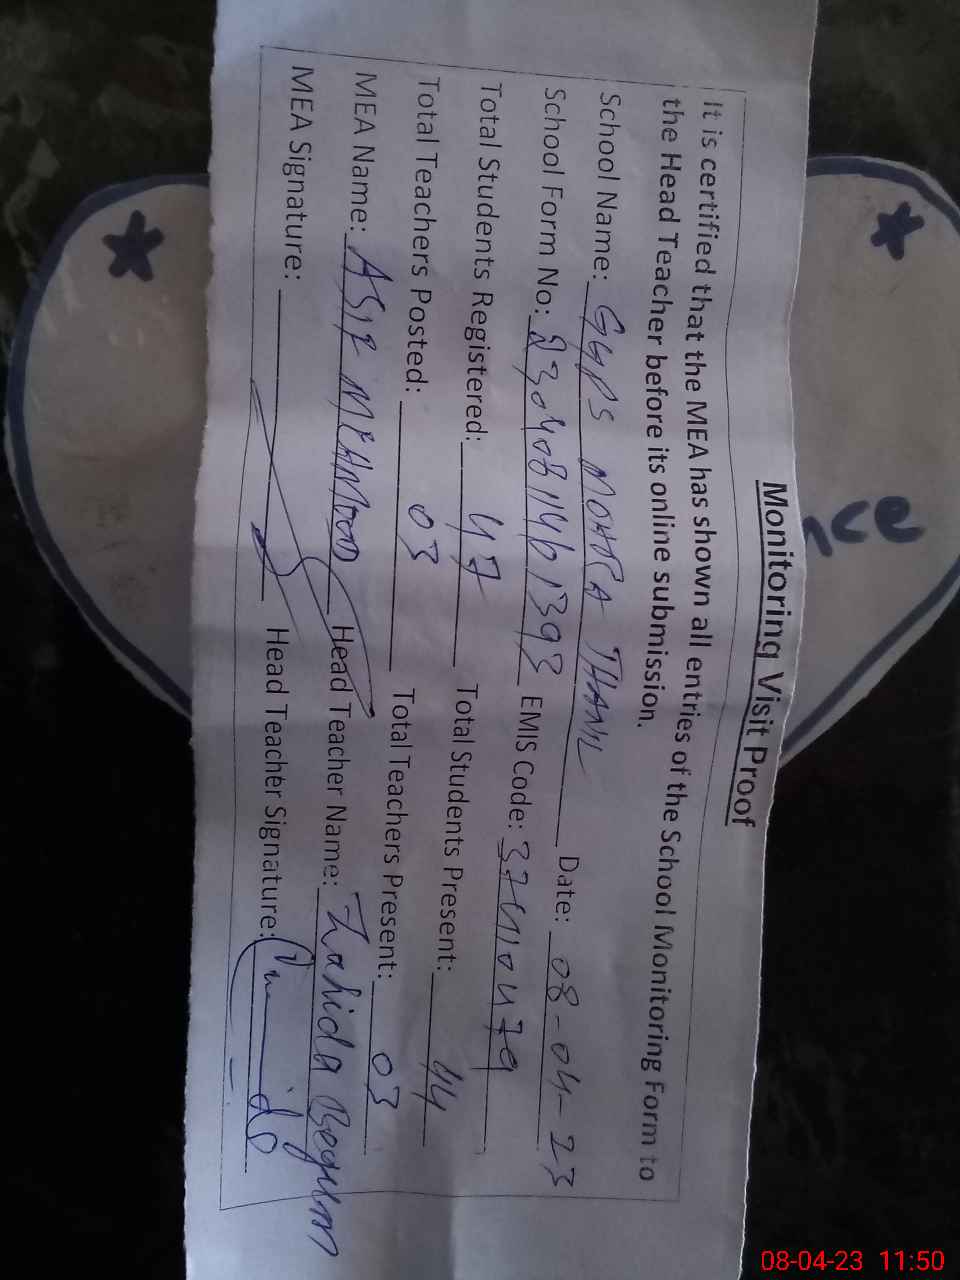 Monitoring Visit Proof
It is certified that the MEA has shown all entries of the School Monitoring Form to
the Head Teacher before its online submission.
School Name: GGPS MOHRA THAML Date: 08-04-23
School Form No: 23040811461393 EMIS Code: 37410479
Total Students Registered: 47 Total Students Present: 44
Total Teachers Posted: 03 Total Teachers Present: 03
MEA Name: ASIF MEAHMOOD Head Teacher Name: Zahida Begum
MEA Signature: Head Teacher Signature:
ce
08-04-23 11:50